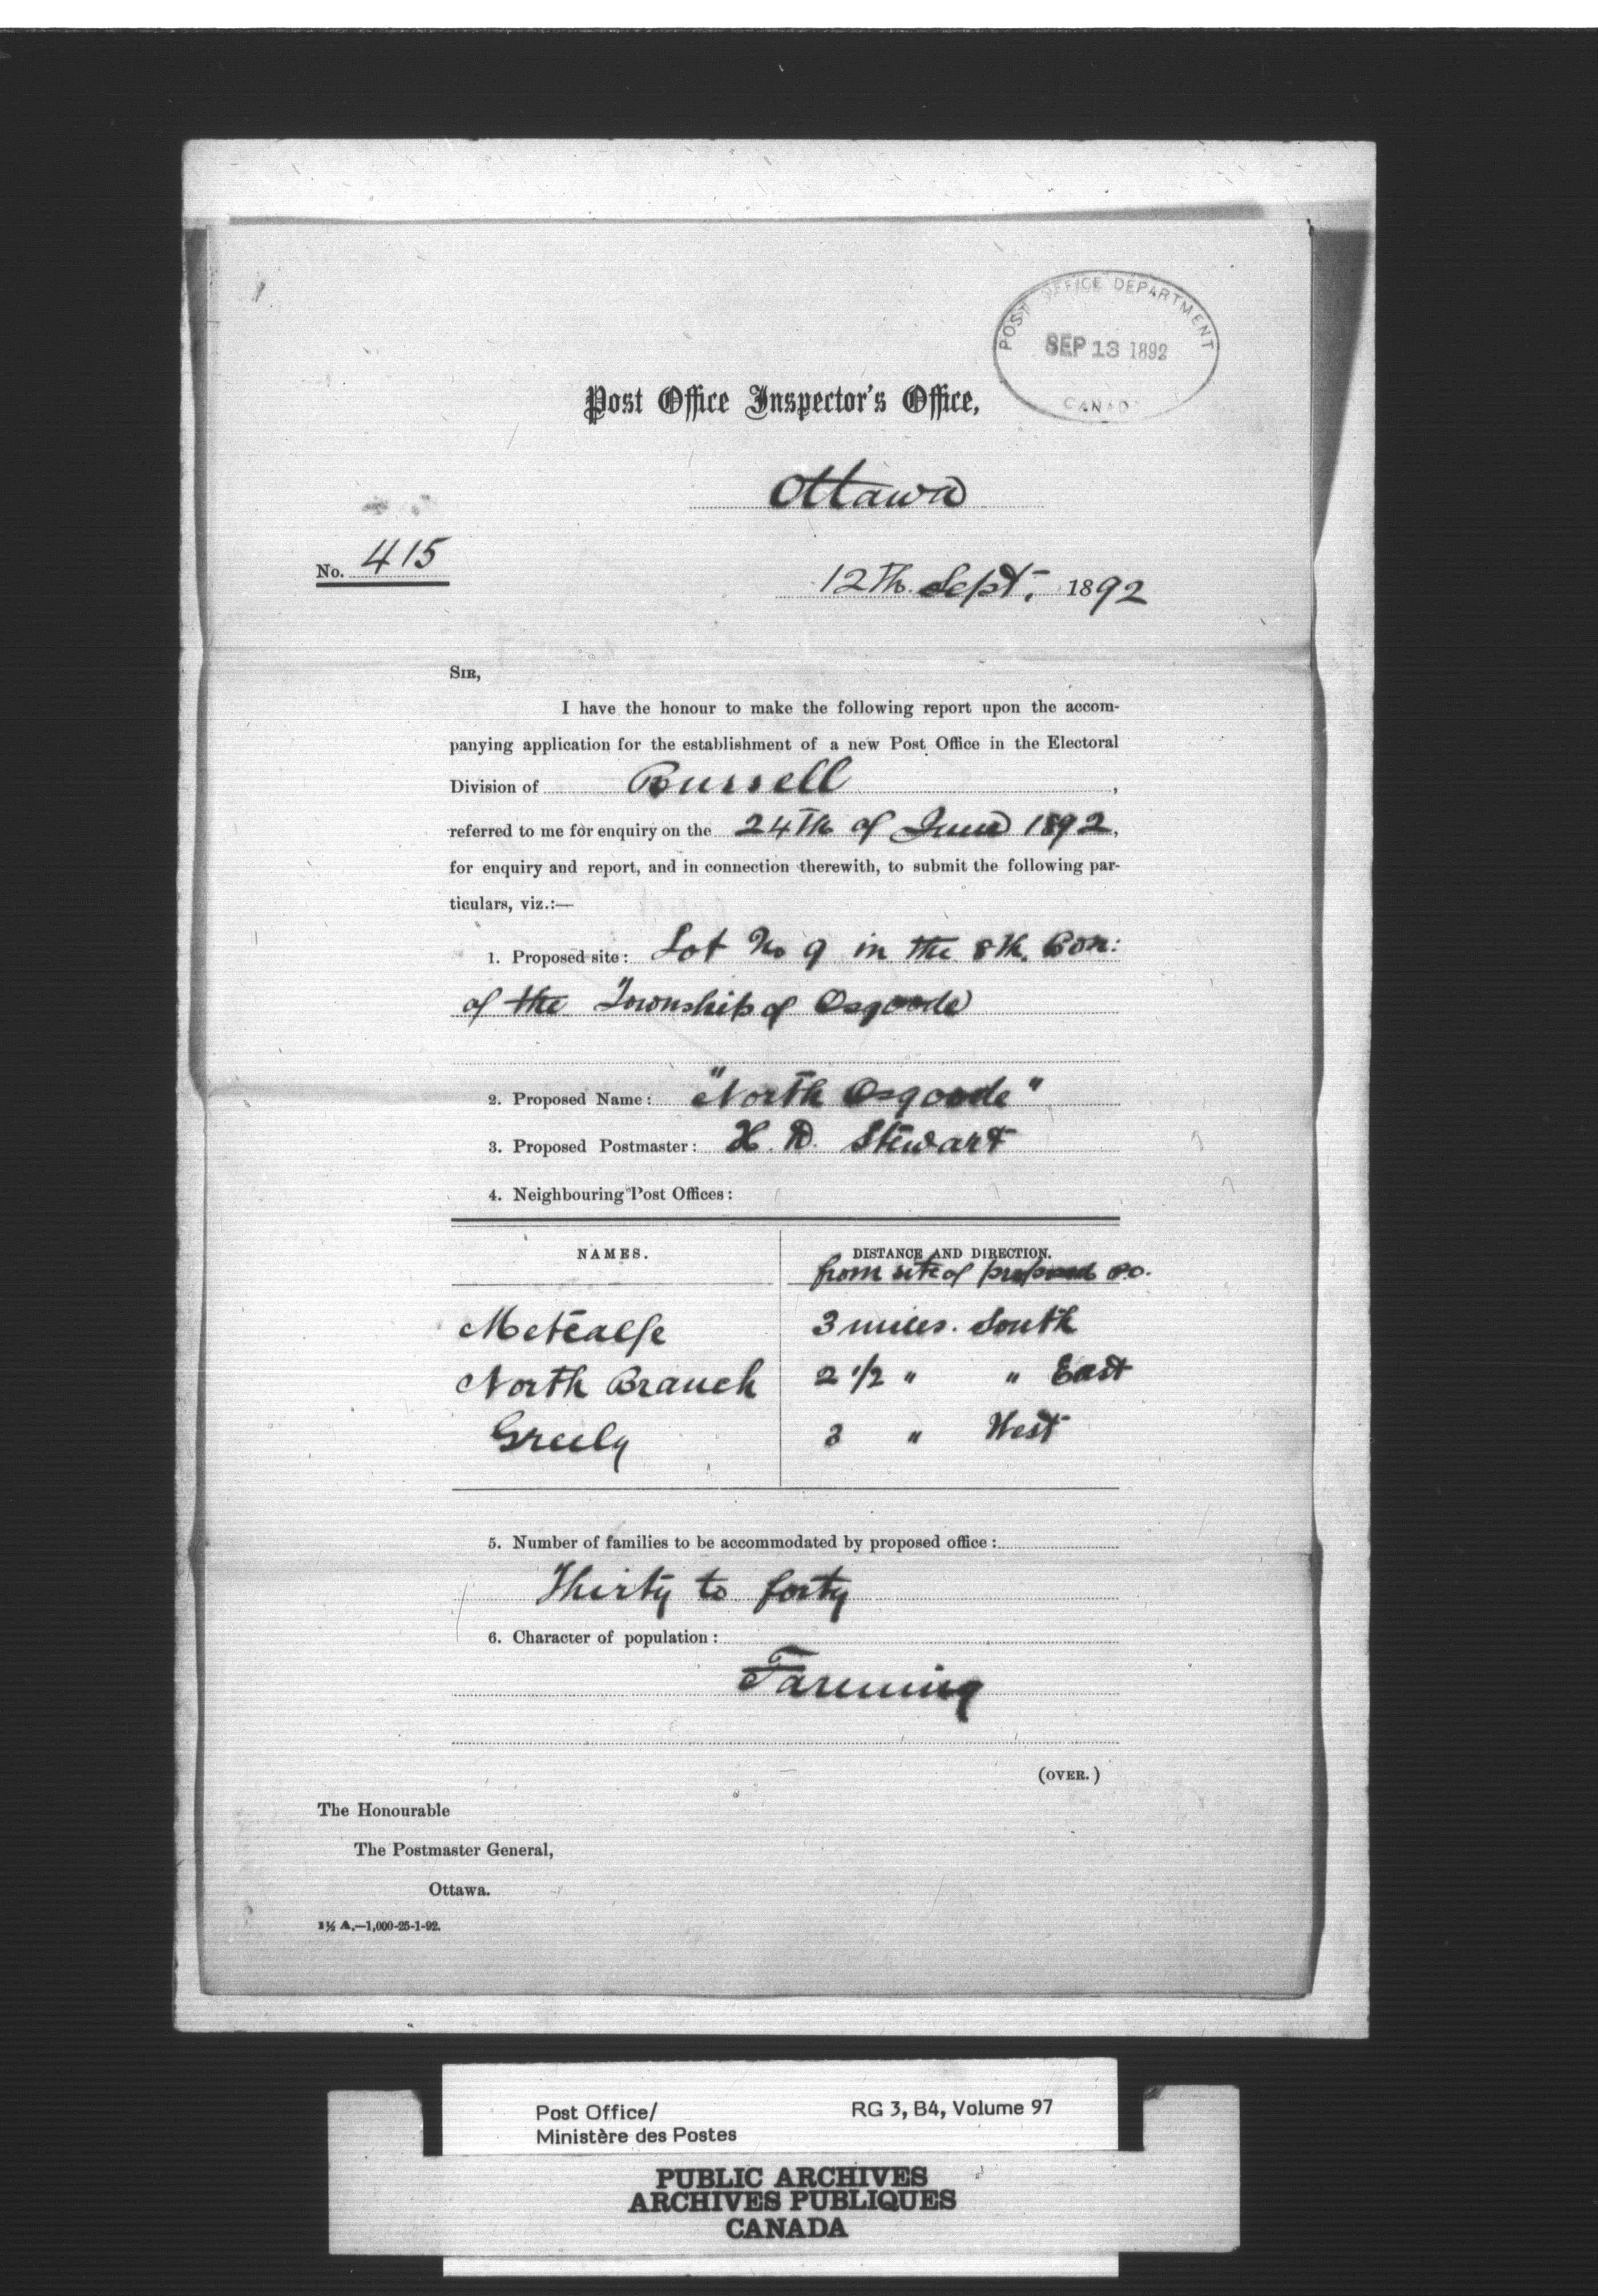 POST OFFICE DEPARTMENT
SEP 13 1892
CANADA
Post Office Inspector's Office,
Ottawa
No. 415
12th Sept. 1892
SIR,
I have the honour to make the following report upon the accom-
panying application for the establishment of a new Post Office in the Electoral
Division of Russell,
referred to me for enquiry on the 24th of June 1892,
for enquiry and report, and in connection therewith, to submit the following par-
ticulars, viz.:—
1. Proposed site: Lot No 9 in the 8th. Con:
of the Township of Osgoode
2. Proposed Name: "North Osgoode"
3. Proposed Postmaster: H. D. Stewart
4. Neighbouring Post Offices:
NAMES. DISTANCE AND DIRECTION.
from site of proposed P.O.
Metcalfe 3 miles. South
North Branch 2 1/2 " " East
Greely 3 " West
5. Number of families to be accommodated by proposed office:
Thirty to forty
6. Character of population:
Farming
(OVER.)
The Honourable
The Postmaster General,
Ottawa.
1½ A.—1,000-25-1-92.
Post Office/ RG 3, B4, Volume 97
Ministère des Postes
PUBLIC ARCHIVES
ARCHIVES PUBLIQUES
CANADA